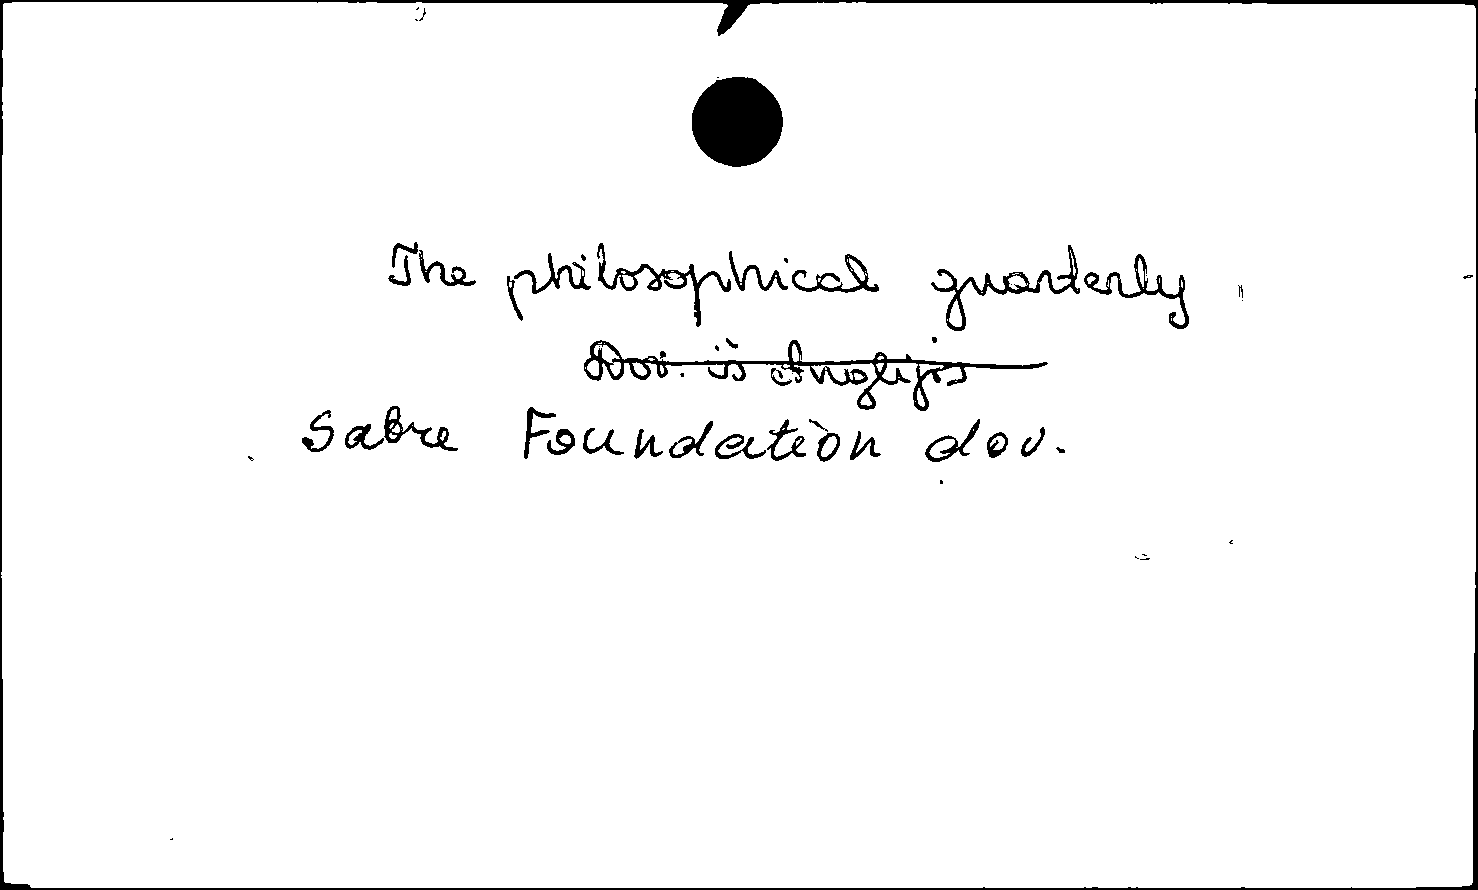 The philosophical quarterly
Dov. iš Anglijos
Sabre Foundation dov.